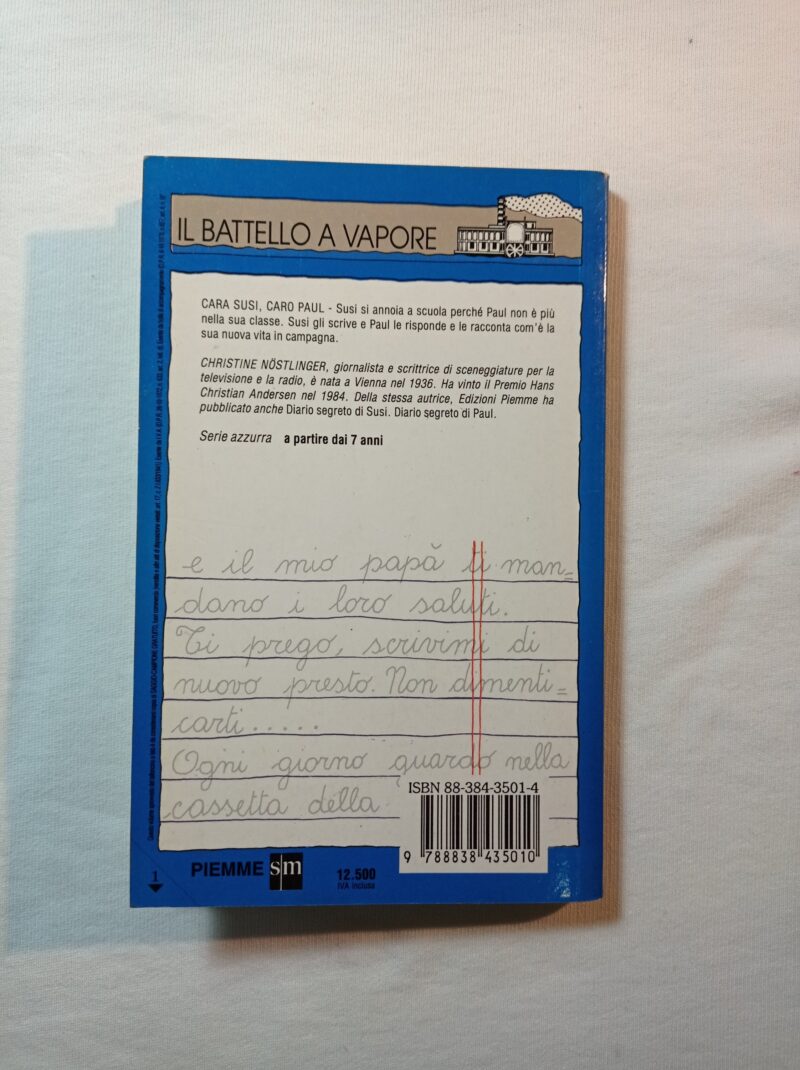 IL BATTELLO A VAPORE
CARA SUSI, CARO PAUL - Susi si annoia a scuola perché Paul non è più
nella sua classe. Susi gli scrive e Paul le risponde e le racconta com'è la
sua nuova vita in campagna.
CHRISTINE NÖSTLINGER, giornalista e scrittrice di sceneggiature per la
televisione e la radio, è nata a Vienna nel 1936. Ha vinto il Premio Hans
Christian Andersen nel 1984. Della stessa autrice, Edizioni Piemme ha
pubblicato anche Diario segreto di Susi. Diario segreto di Paul.
Serie azzurra a partire dai 7 anni
e il mio papà ti man=
dano i loro saluti.
Ti prego, scrivimi di
nuovo presto. Non dimenti=
carti.....
Ogni giorno guardo nella
cassetta della
ISBN 88-384-3501-4
9 788838 435010
1
PIEMME s/m
12.500
IVA inclusa